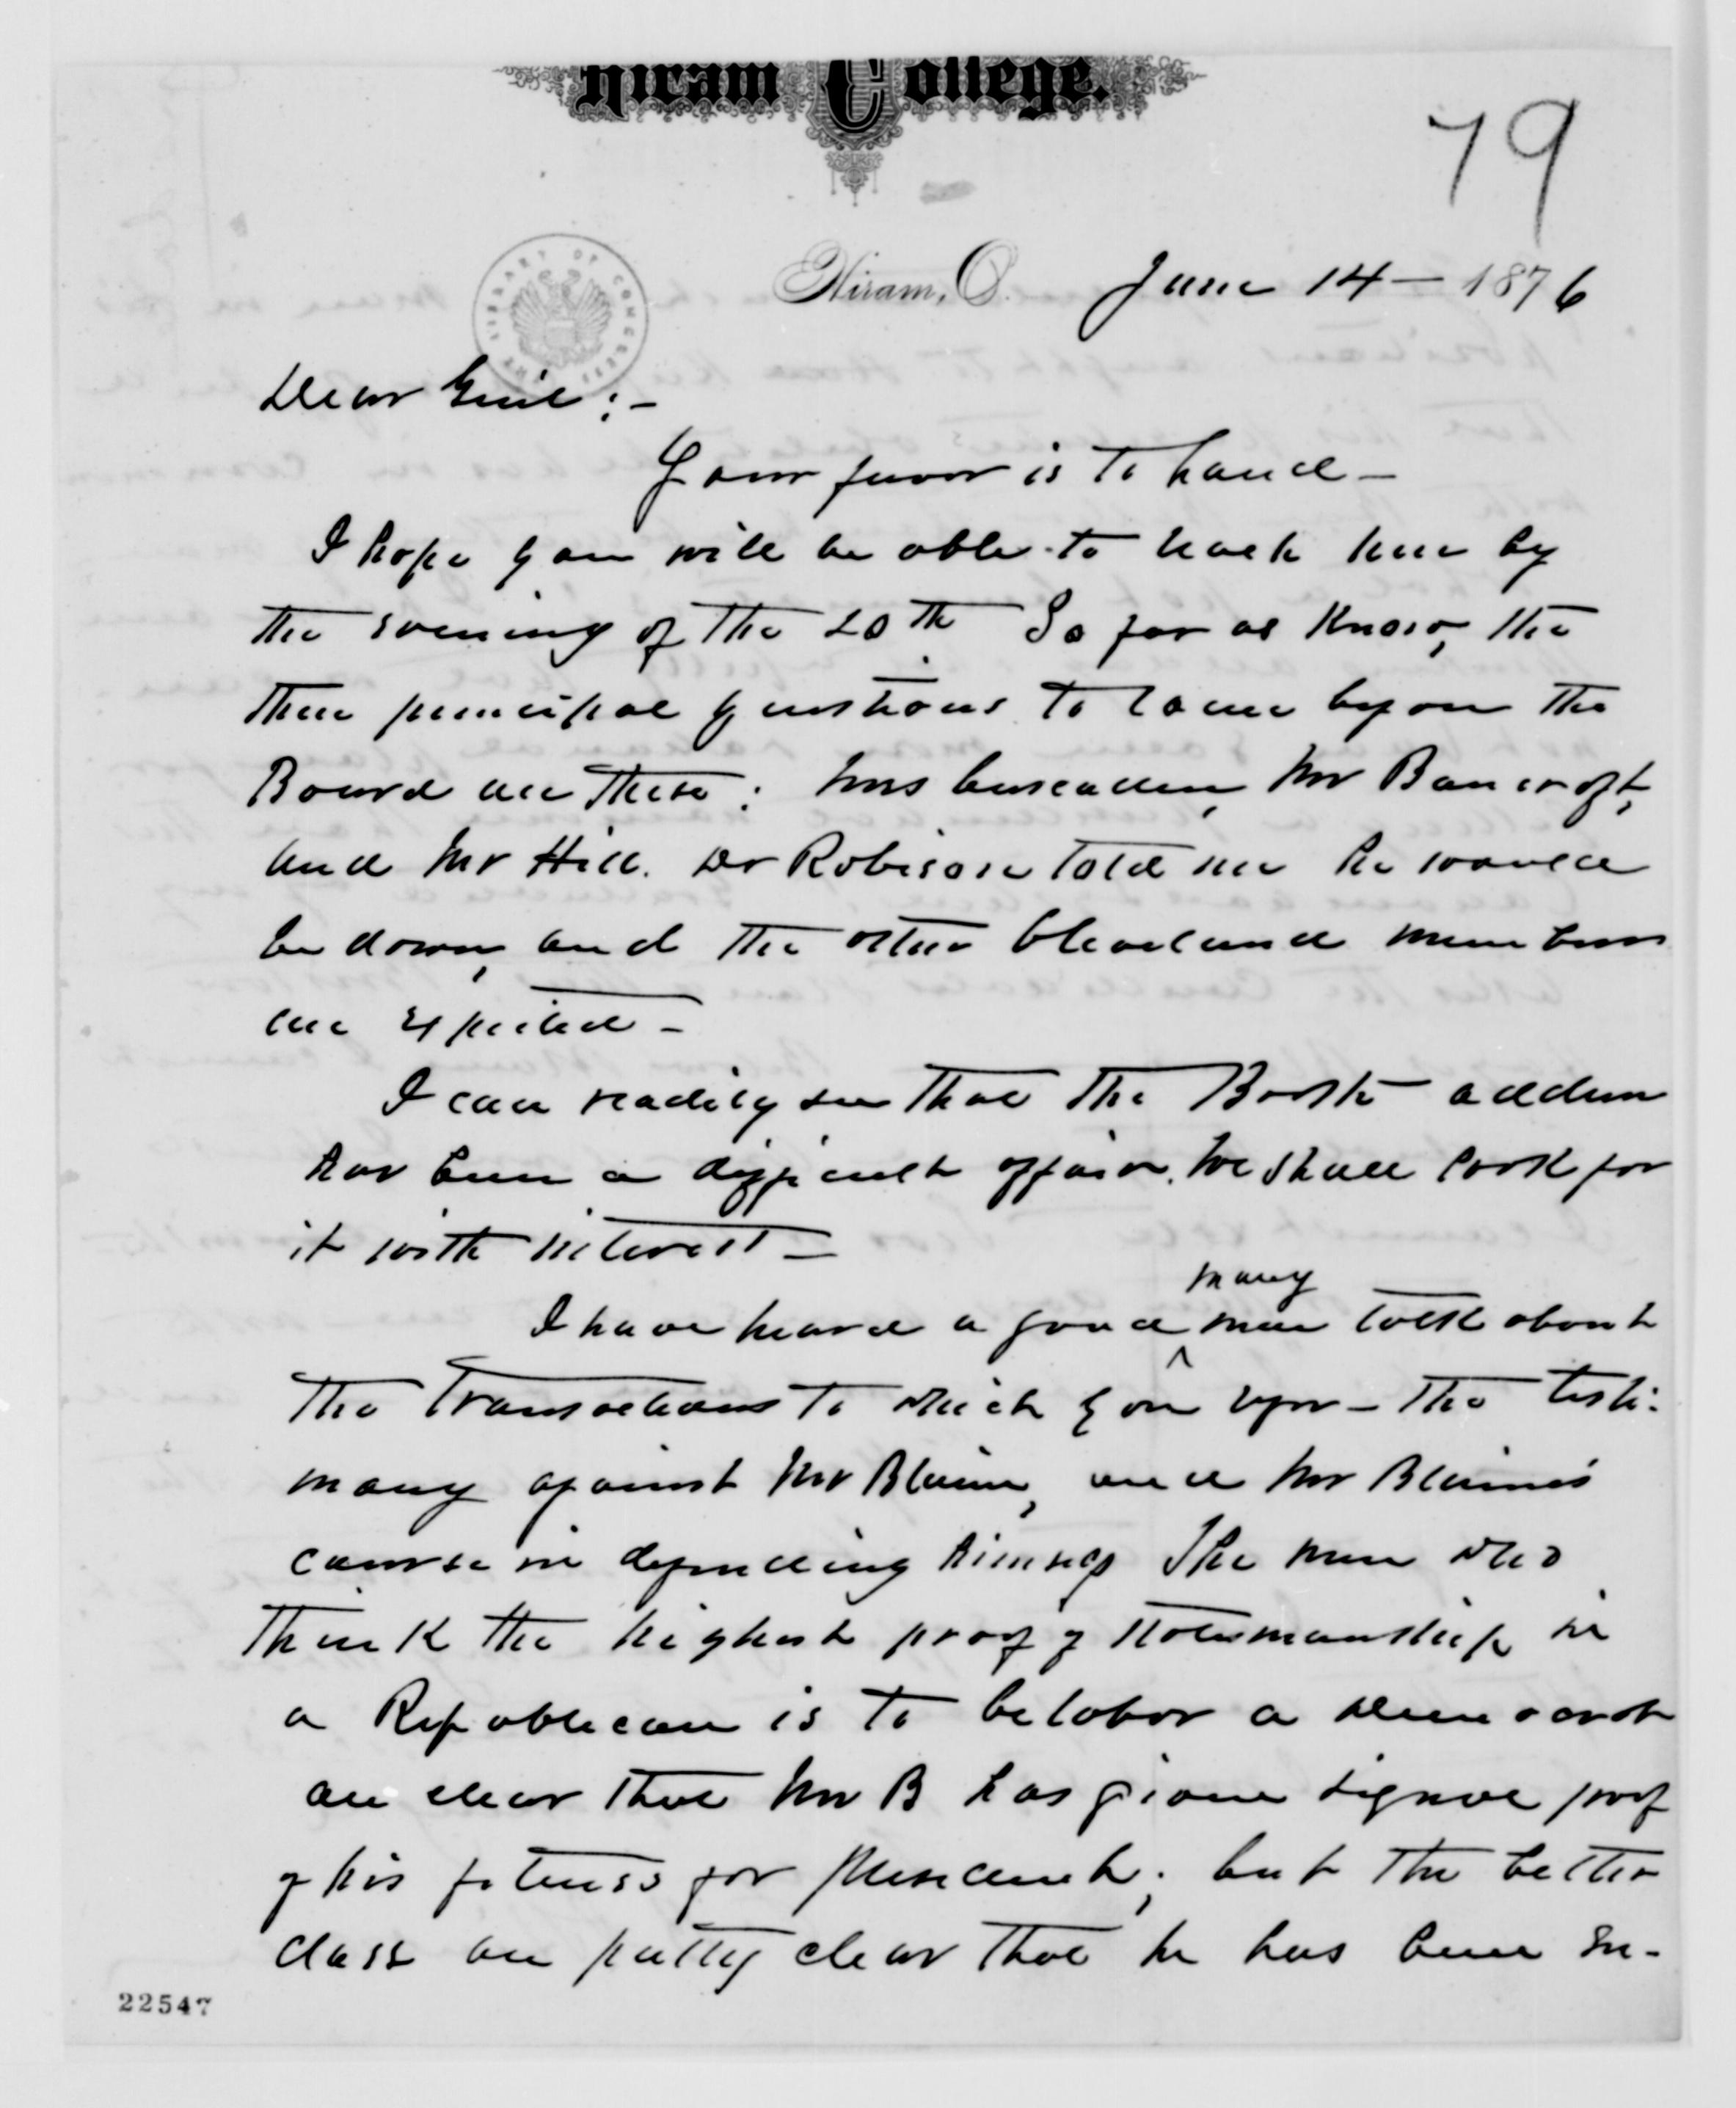 Hiram College.
79
Hiram, O. June 14 — 1876
Dear Genl:—
Your favor is to hand—
I hope you will be able to reach here by
the evening of the 20th So far as Know, the
three principal questions to come before the
Board are these: Mr Bancroft,
and Mr Hill. Dr Robison told me he would
be down, and the other Cleveland members
are expected—
I can readily see that the Booth address
has been a difficult affair. We shall look for
it with interest—
I have heard a good many men talk about
the transactions to which you refer— the testi-
mony against Mr Blaine, and Mr Blaine's
course in defending himself The men who
think the highest proof of statesmanship in
a Republican is to belabor a Democrat
are clear that Mr B has given signal proof
of his fitness for President; but the better
class are pretty clear that he has been in-
22547
THE LIBRARY OF CONGRESS